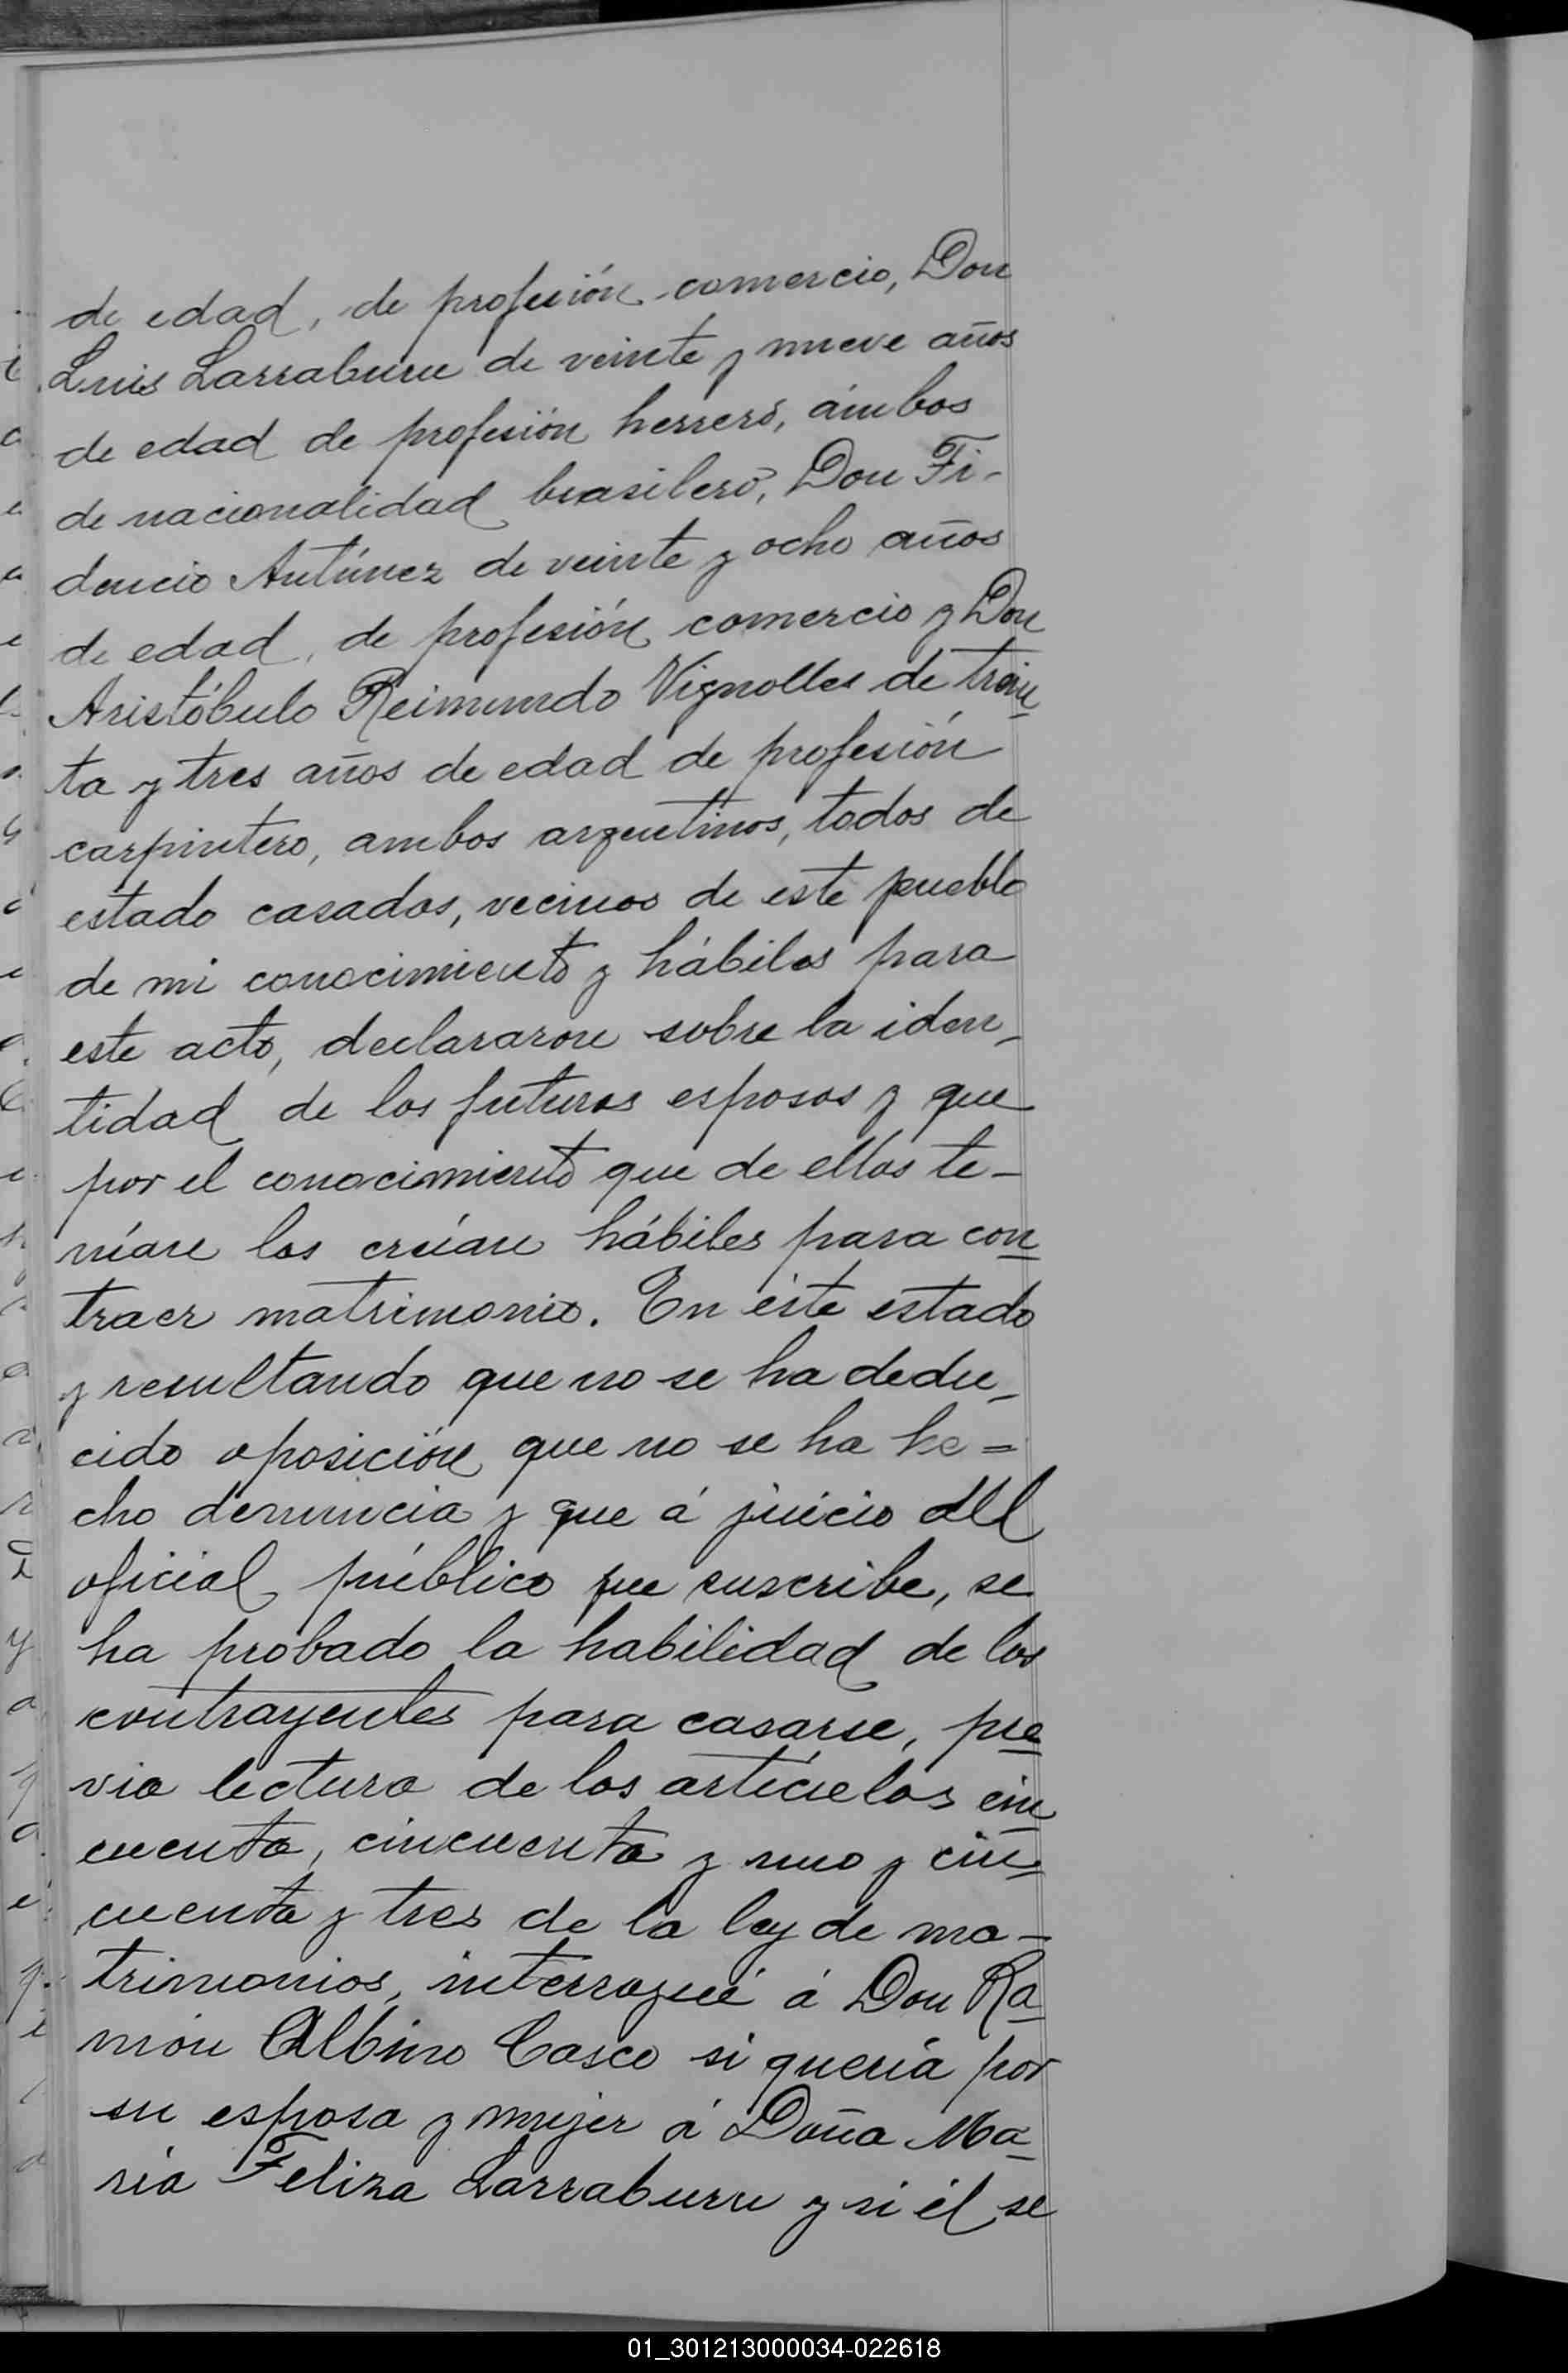 de edad, de profesión comercio, Don
Luis Larraburu de veinte y nueve años
de edad de profesión herrero, ámbos
de nacionalidad brasilero, Don Fi-
dencio Antúnez de veinte y ocho años
de edad, de profesión comercio y Don
Aristóbulo Reimundo Vignolles de trein
ta y tres años de edad de profesión
carpintero, ambos argentinos, todos de
estado casados, vecinos de este pueblo
de mi conocimiento y hábiles para
este acto, declararon sobre la iden-
tidad de los futuros esposos y que
por el conocimiento que de ellos te-
nían los creían hábiles para con
traer matrimonio. En éste estado
y resultando que no se ha dedu-
cido oposición que no se ha he=
cho denuncia y que á juicio del
oficial público que suscribe, se
ha probado la habilidad de los
contrayentes para casarse, pre
via lectura de los artículos cin
cuenta, cincuenta y uno y cin=
cuenta y tres de la ley de ma-
trimonios, interrogué á Don Ra
món Albino Casco si quería por
su esposa y mujer á Doña Ma
ría Feliza Larraburu y si él se
01_301213000034-022618